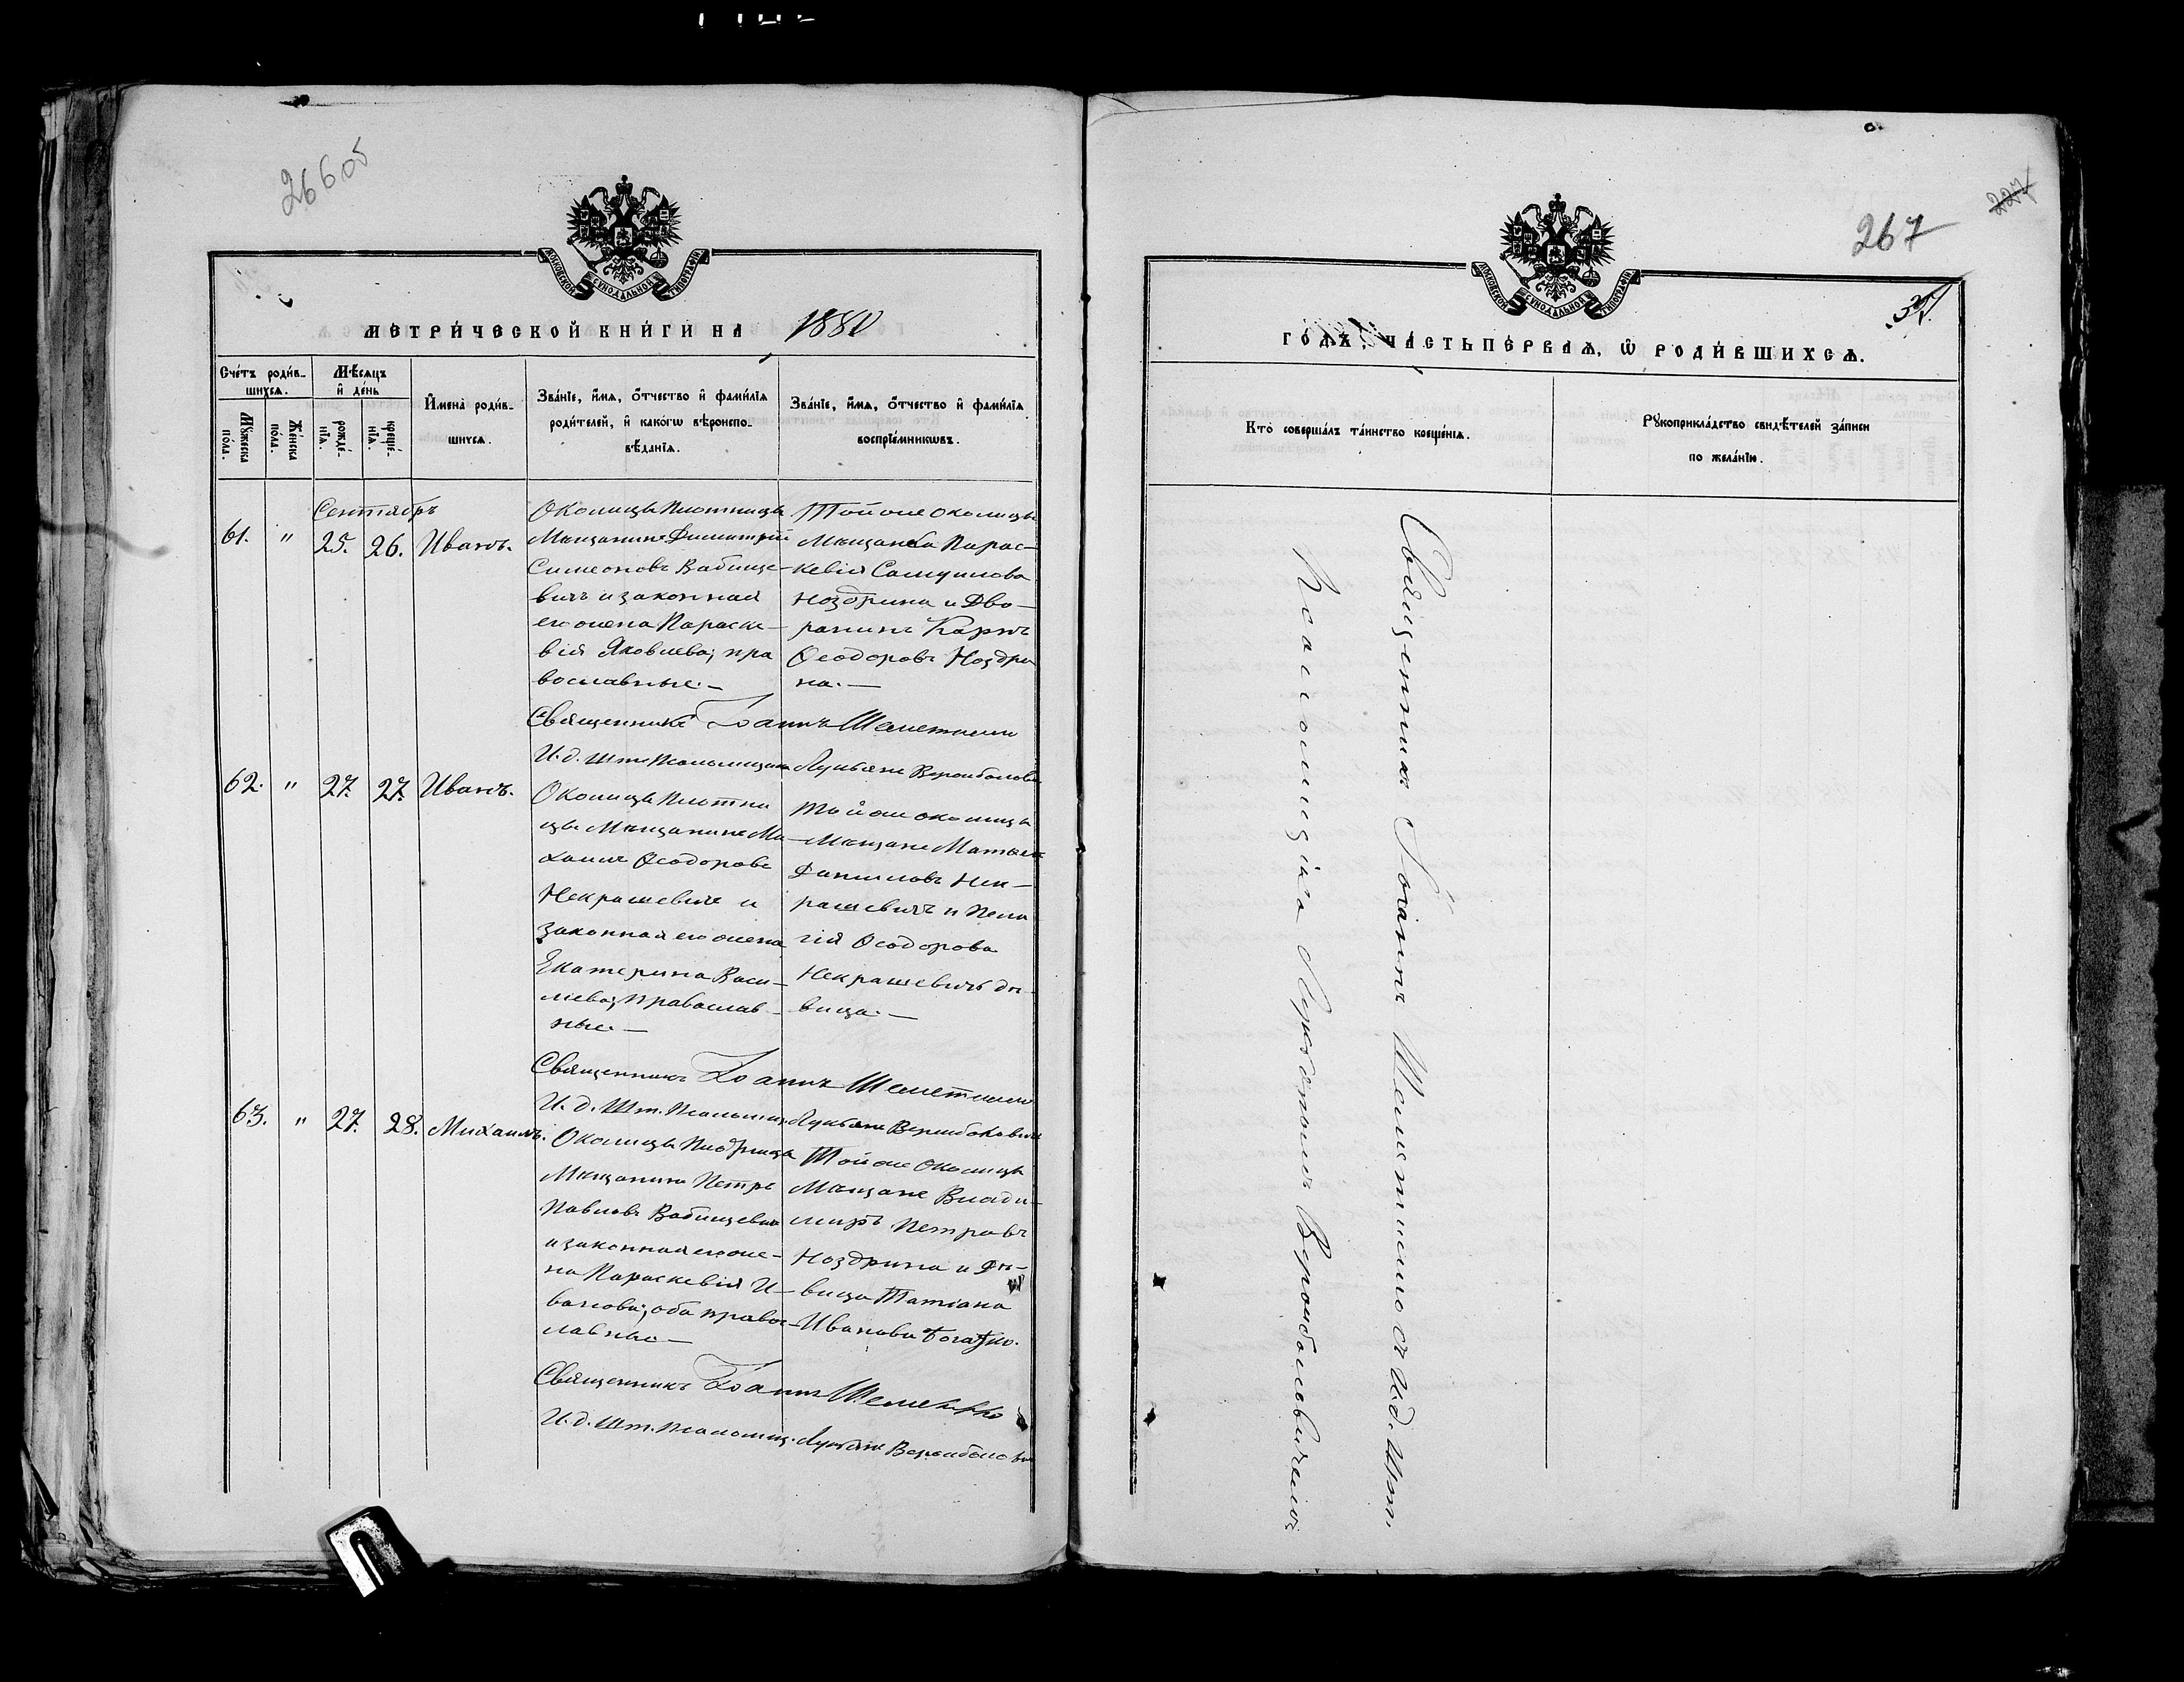 266об
МОСКОВСКОЙ СѴНОДАЛЬНОЙ ТИПОГРАФІИ
МЕТРИ́ЧЕСКОЙ КНИ́ГИ НА 1880
Сче́тъ роди́в-
шихсѧ.
Мꙋ́жеска по́ла.
Же́нска по́ла.
Мѣ́сѧцъ
и҆ де́нь
рожде́-
нїѧ.
креще́-
нїѧ.
И҆мена̀ роди́в-
шихсѧ.
Зва́нїе, и҆́мѧ, ѻ҆́тчество и҆ фами́лїѧ
роди́телей, и҆ како́гѡ вѣроиспо-
вѣ́данїѧ.
Зва́нїе, и҆́мѧ, ѻ҆́тчество и҆ фами́лїѧ
воспрїе́мникѡвъ.
Сентябръ
61. " 25. 26. Иванъ.
Околицы Плотницы
Мѣщанинъ Димитрій
Симеоновъ Вабище-
вичъ и законная
его жена Параске-
вія Яковлева; пра
вославные.-
Той же околицы
Мѣщанка Парас-
кевія Самуилова
Ноздрина и Дво-
ранинъ Карпъ
Ѳеодоровъ Ноздри
на.-
Священникъ Іоаннъ Шеметилло
И.д. шт. Псаломщика Лукьянъ
62. " 27. 27. Иванъ.
Околицы Плотни
цы Мѣщанинъ Ми-
хаилъ Ѳеодоровъ
Некрашевичъ и
законная его жена
Екатерина Васи-
ліева; православ-
ные.-
Той же околицы
Мѣщане Матвей
Даниловъ Нек-
рашевичъ и Пела
гія Ѳеодорова
Некрашевичъ дѣ-
вица.-
Священникъ Іоаннъ Шеметилло
И.д. Шт. Псаломщ. Лукьянъ
63. " 27. 28. Михаилъ.
Околицы
Мѣщанинъ Петръ
Павловъ Вабищевичъ
и законная его же-
на Параскевія И-
ванова; оба право-
лавные-
Той же Околицы
Мѣщане Влади-
миръ Петровъ
Ноздрина и дѣ-
вица Татіана
Иванова
Священникъ Іоаннъ Шеметилло
И.д. Шт. Псаломщ. Лукьянъ
267
227
МОСКОВСКОЙ СѴНОДАЛЬНОЙ ТИПОГРАФІИ
ГО́ДЪ, ЧА́СТЬ ПЕ́РВАѦ, Ѽ РОДИ́ВШИХСѦ.
Кто̀ соверша́лъ та́инство креще́нїѧ.
Рꙋкоприкла́дство свидѣ́телей за́писи
по жела́нїю.
Священникъ Іоаннъ Шеметилло съ и.д. Шт.